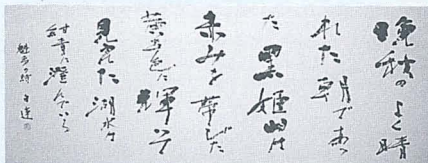 晩秋のよく晴
れた朝であっ
た黒姫山は
赤みを帯びた
黄金色に輝いて
見えた湖水は
紺青に澄んでいる
魁夷の詩